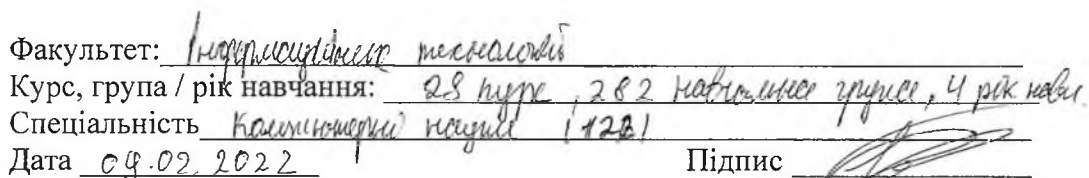 Факультет: Інформаційних технологій
Курс, група / рік навчання: 28 курс, 282 навчальна група, 4 рік навч.
Спеціальність Комп'ютерні науки (122)
Дата 09.02.2022 Підпис